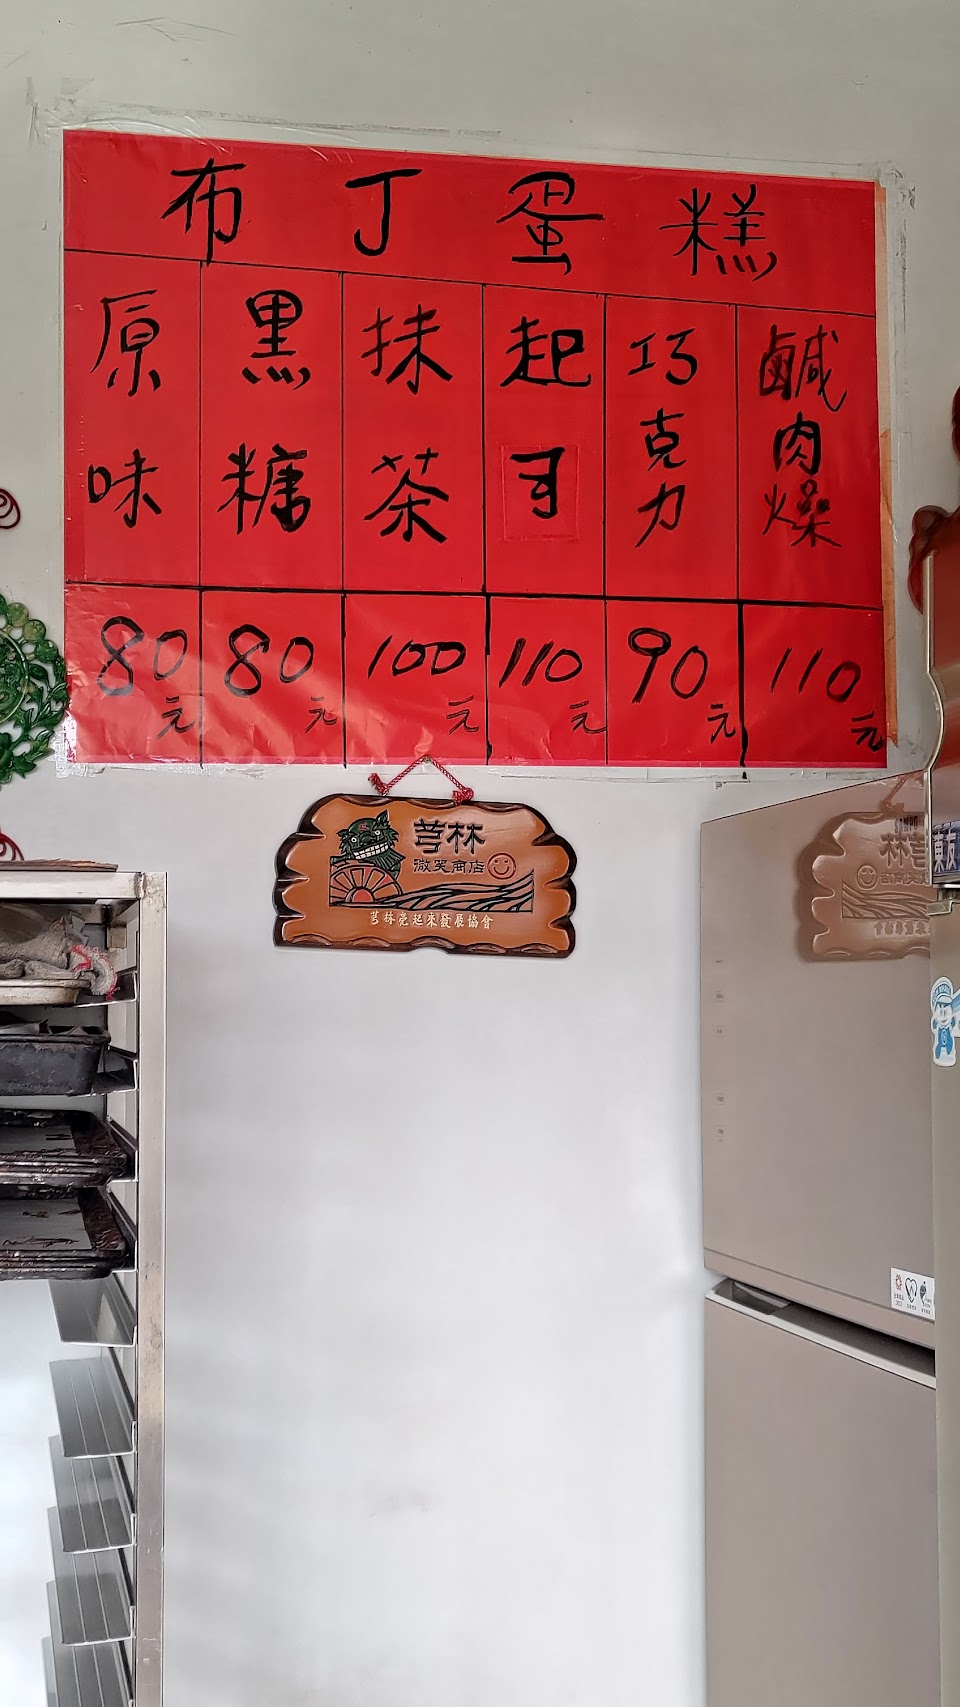 布丁蛋糕
原味
黑糖
抹茶
起司
巧克力
鹹肉燥
80元
80元
100元
110元
90元
110元
芎林
微笑商店
芎林亮起來發展協會
東友